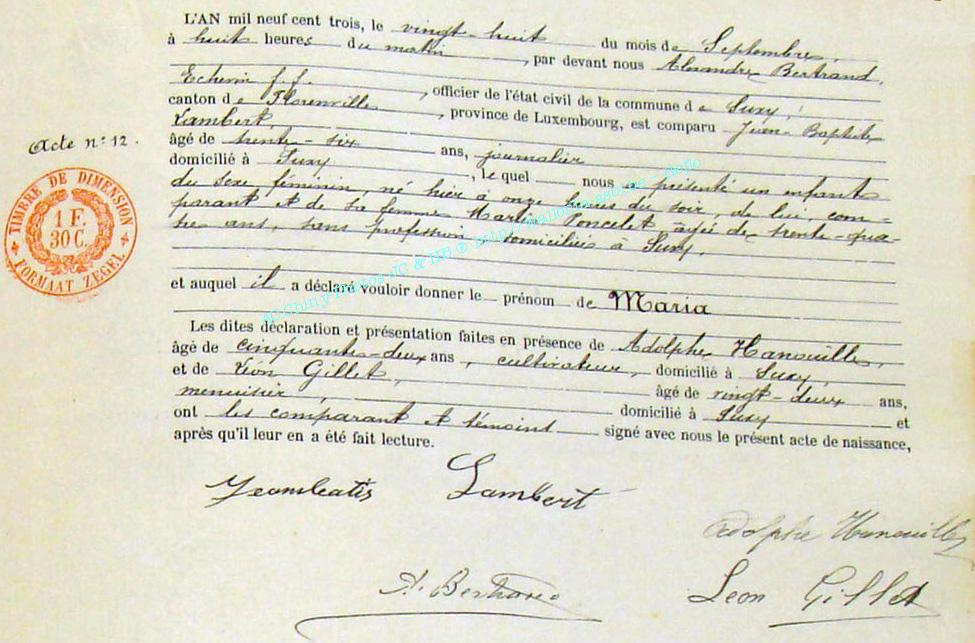 L'AN mil neuf cent trois, le vingt-huit du mois de Septembre,
à huit heures du matin, par devant nous Alexandre Bertrand,
Echevin f.f., officier de l'état civil de la commune de Suxy,
canton de Florenville, province de Luxembourg, est comparu Jean-Baptiste
Lambert,
Acte n° 12.
âgé de trente-six ans, journalier
domicilié à Suxy, lequel nous a présenté un enfant
du sexe féminin, né hier à onze heures du soir, de lui, com-
parant et de sa femme Maria Poncelet âgée de trente-qua-
tre ans, sans profession domiciliée à Suxy.
TIMBRE DE DIMENSION
1 F.
30 C.
FORMAAT ZEGEL
et auquel il a déclaré vouloir donner le prénom de Maria
Les dites déclaration et présentation faites en présence de Adolphe Hanouille,
âgé de cinquante-deux ans, cultivateur, domicilié à Suxy,
et de Léon Gillet, âgé de vingt-deux ans,
menuisier, domicilié à Suxy et
ont les comparant et témoins signé avec nous le présent acte de naissance,
après qu'il leur en a été fait lecture.
Lambert
Adolphe Hanouille
A. Bertrand
Leon Gillet